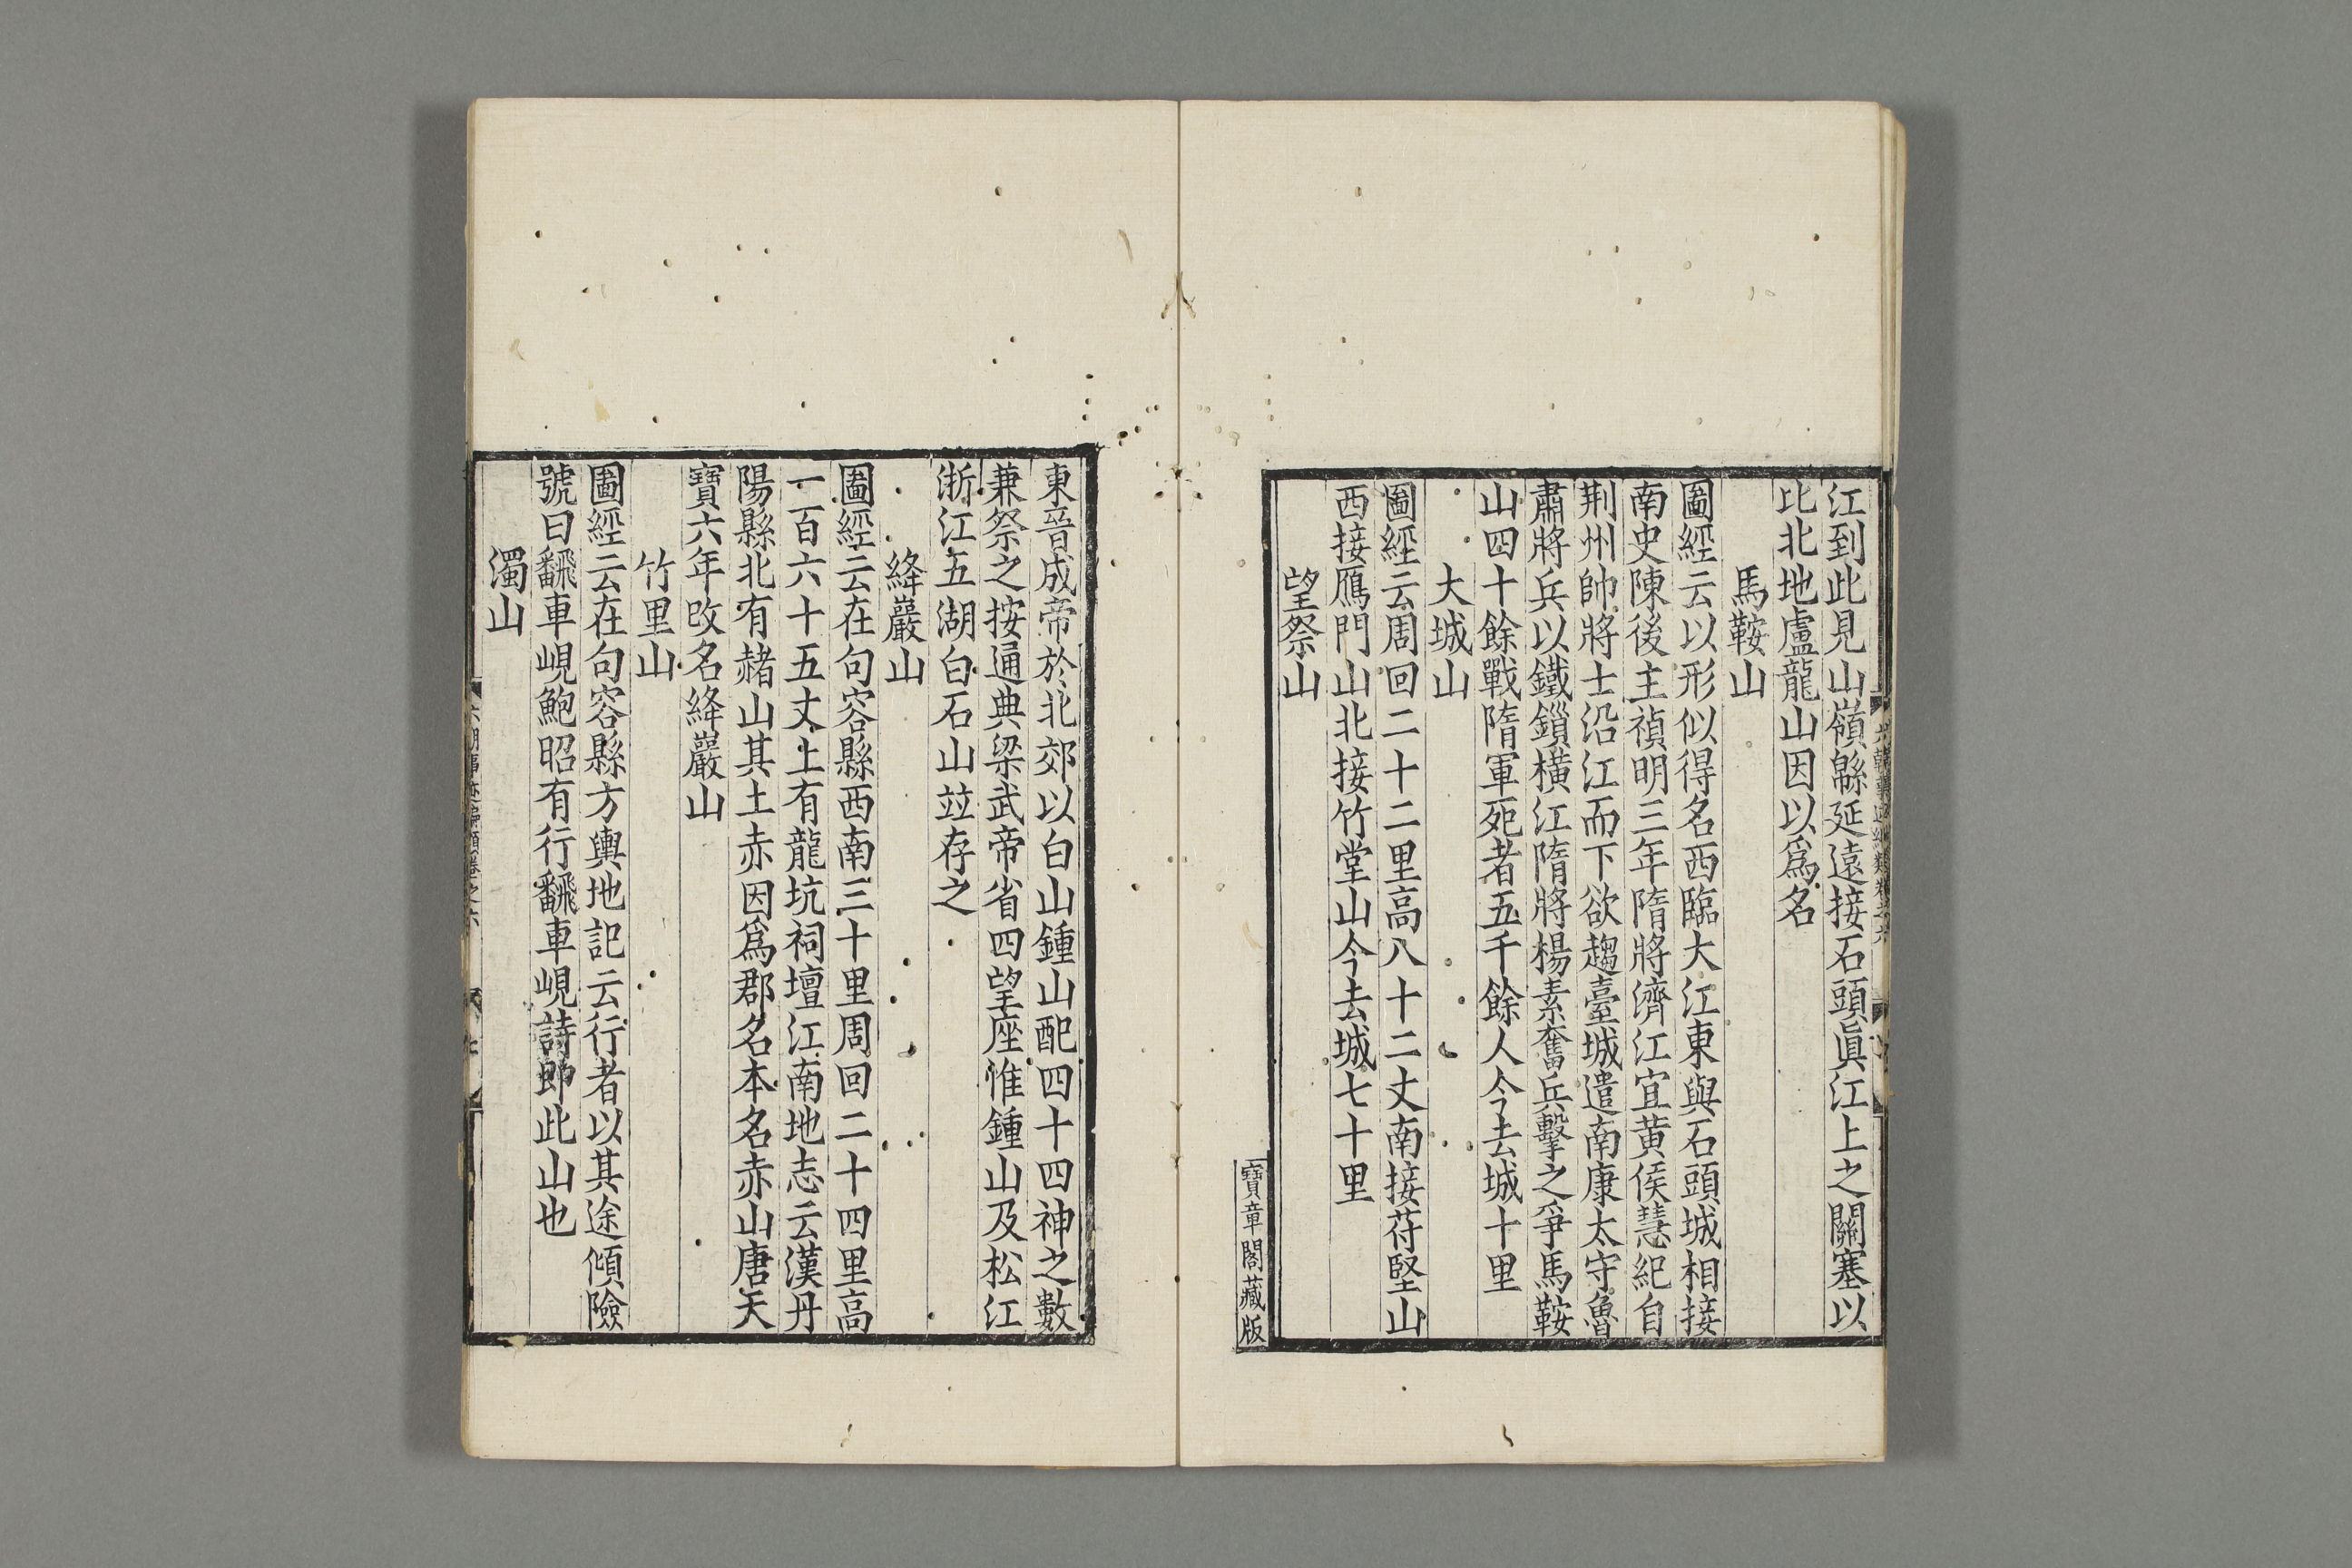 江到此見山嶺緜延遠接石頭眞江上之關塞以
比北地盧龍山因以爲名
馬鞍山
圖經云以形似得名西臨大江東與石頭城相接
南史陳後主禎明三年隋將濟江宜黄侯慧紀自
荆州帥將士沿江而下欲趨臺城遣南康太守魯
肅將兵以鐵鎻橫江隋將楊素奮兵擊之爭馬鞍
山四十餘戰隋軍死者五千餘人今去城十里
大城山
圖經云周回二十二里高八十二丈南接苻堅山
西接鴈門山北接竹堂山今去城七十里
望祭山
寶章閣藏版
東晉成帝於北郊以白山鍾山配四十四神之數
兼祭之按通典梁武帝省四望座惟鍾山及松江
浙江五湖白石山竝存之
絳巖山
圖經云在句容縣西南三十里周回二十四里高
一百六十五丈上有龍坑祠壇江南地志云漢丹
陽縣北有赭山其土赤因爲郡名本名赤山唐天
寶六年改名絳巖山
竹里山
圖經云在句容縣方輿地記云行者以其途傾險
號曰飜車峴鮑昭有行飜車峴詩卽此山也
濁山
六朝事迹編類卷之六